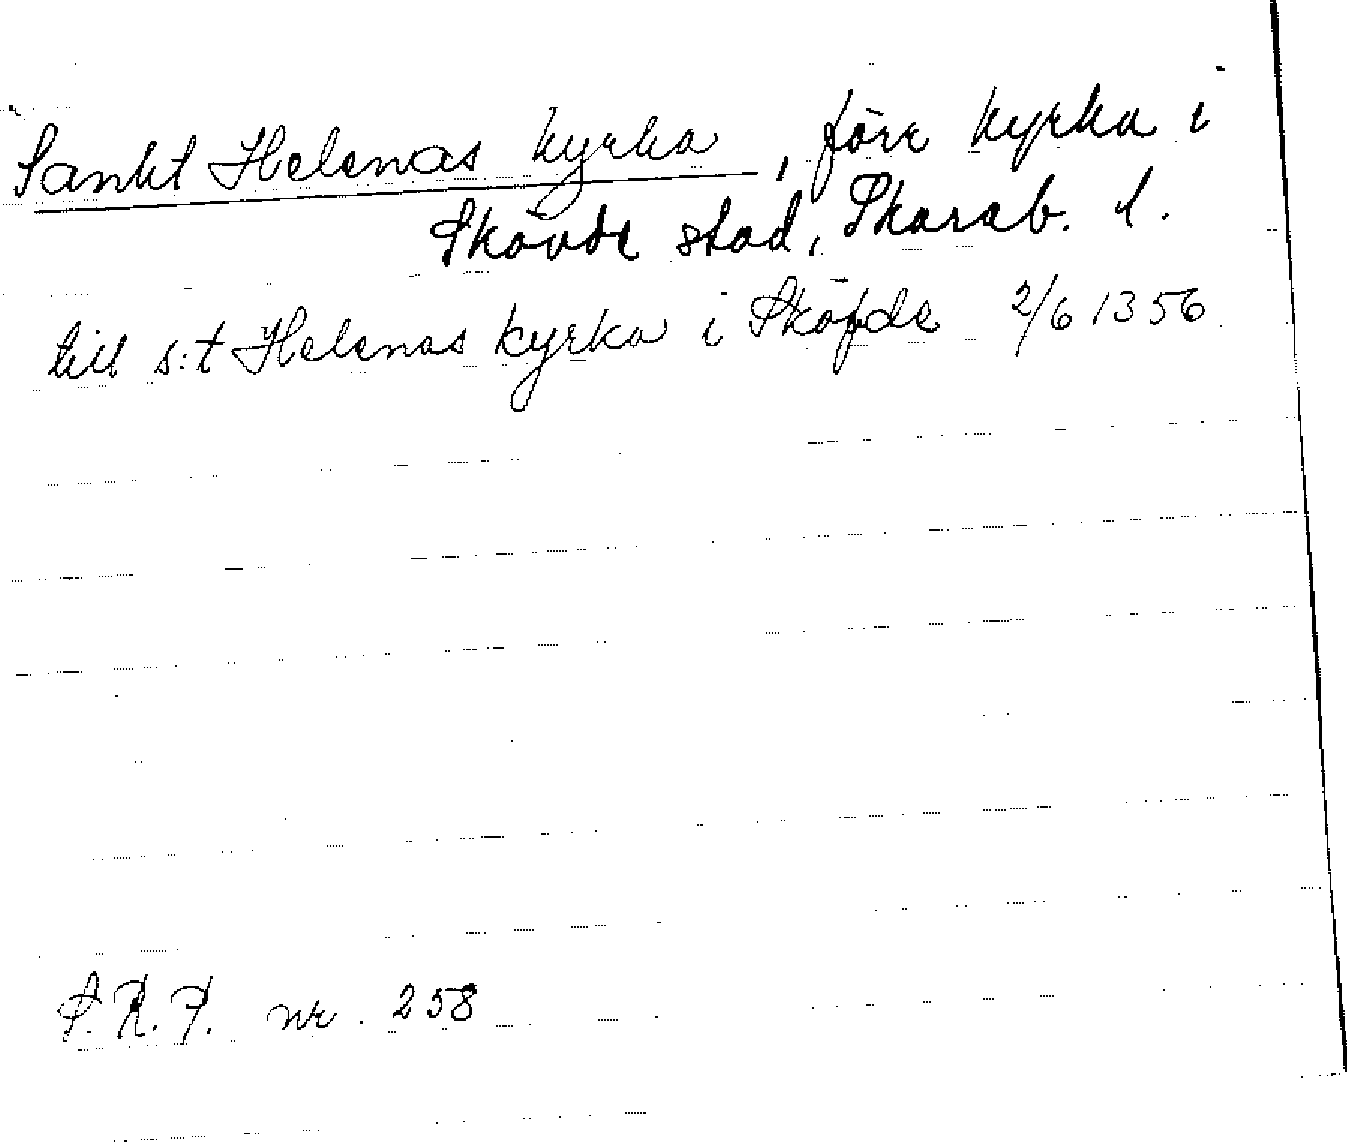 Sankt Helenas kyrka, före kyrka i
Skövde stad, Skarab. l.
till s:t Helenas kyrka i Sköfde 2/6 1356
S.R.P. nr. 258